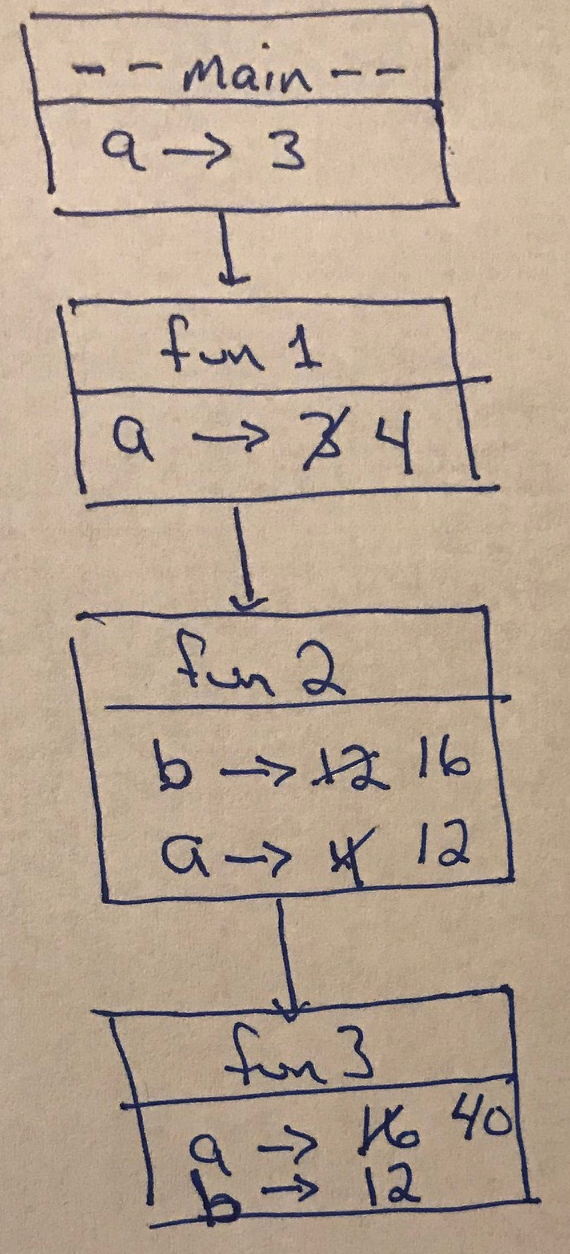 -- main --
a → 3
fun 1
a → 3 4
fun 2
b → 12 16
a → 4 12
fun 3
a → 16 40
b → 12